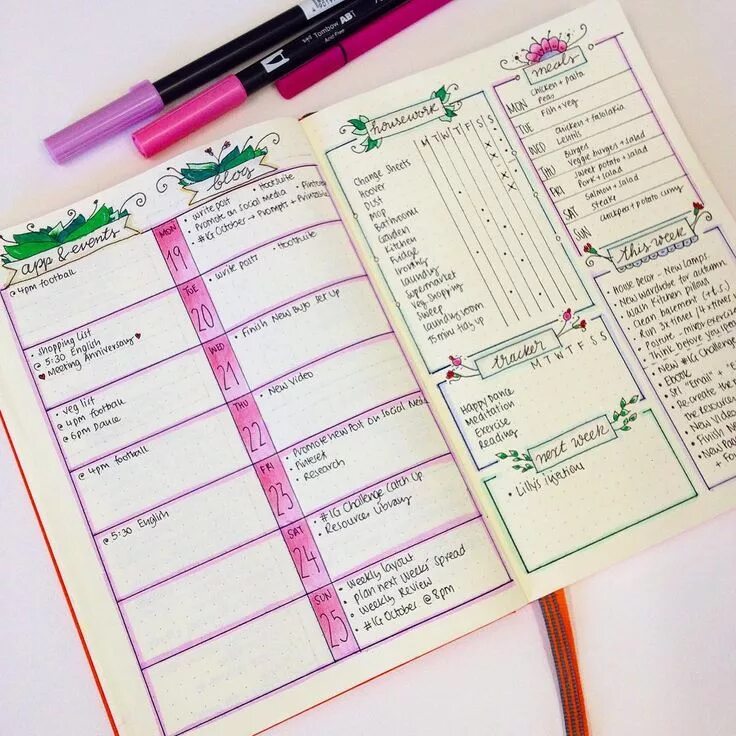 Tombow ABT
app & events
@ 4pm football
Shopping List
@ 5:30 English
Meeting Anniversary
veg list
@ 4pm football
@ 6pm Dance
@ 4pm football
@ 5:30 English
MON 19
TUE 20
WED 21
THU 22
FRI 23
SAT 24
SUN 25
blog
• write post • Hootsuite
• Promote on social media
• #IG October → Prompts + Printable
• write post • Hootsuite
• Finish New BuJo Set Up
• New Video
• Promote new Post on Social Media
• Pinterest
• Research
• #IG Challenge Catch Up
• Resources Library
• Weekly layout
• plan next weeks' spread
• Weekly Review
• #IG October @ 8pm
housework
M T W T F S S
Change Sheets
Hoover
Dust
Mop
Bathrooms
Garden
Kitchen
Fridge
Ironing
Laundry
Supermarket
Veg Shopping
Sweep
Laundry room
15 min tidy up
tracker
M T W T F S S
Happy Dance
Meditation
Exercise
Reading
next week
• Lilly's injection
meals
MON chicken + pasta
Peas
TUE Fish + veg
WED chicken + falolakia
Lentils
THU Burgers
Veggie burgers + salad
FRI Sweet potato + salad
Pork + salad
SAT Salmon + salad
Steak
SUN chickpea + potato curry
this week
• House Decor - New Lamps,
• New wardrobe for autumn
• Wash Kitchen pillows
• Clean basement
• Run 3x times / 4x times
• Posture, mirror exercise
• Think before you
• New #IG Challenge
• Ebook
• Set "Email" +
• Re-create the
the Resources
• New Video
• Finish New
• New